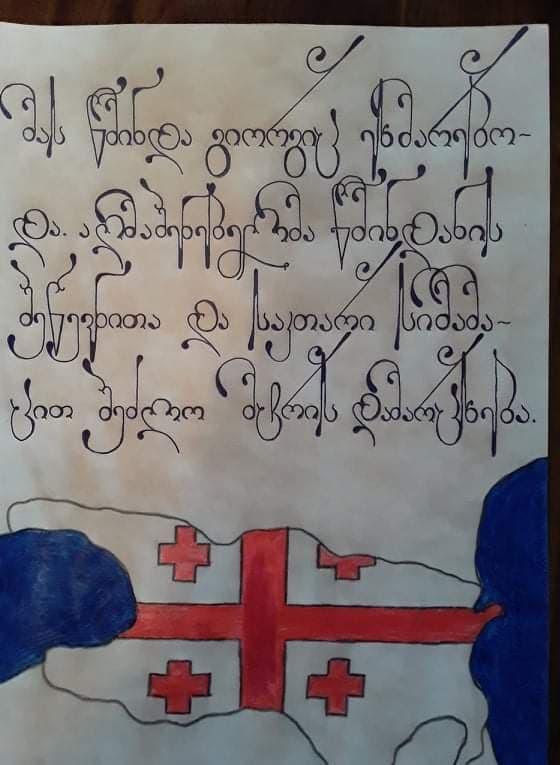 მას წმინდა გიორგიც ეხმარებო-
და. აღმაშენებელმა წმინდანის
შეწევნითა და საკუთარი სიმამა-
ცით შეძლო მტრის დამარცხება.